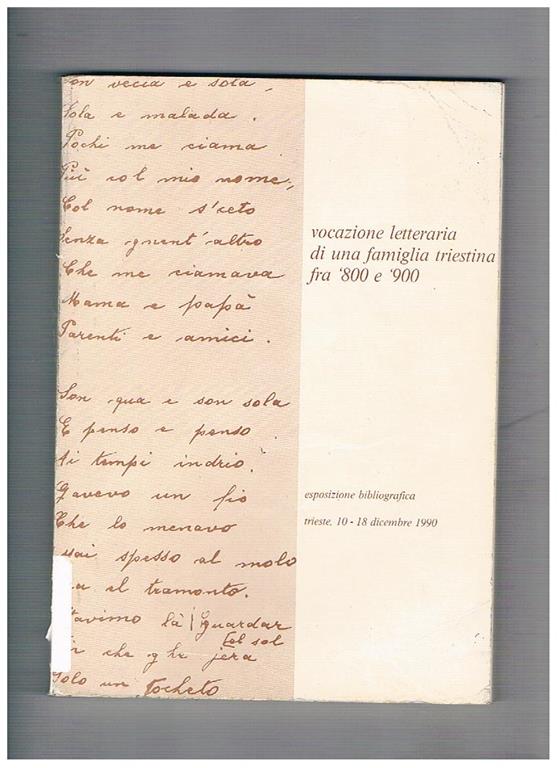 Son vecia e sola,
Sola e malada.
Pochi me ciama
Più col mio nome,
Col nome s'ceto
Senza gnent'altro
Che me ciamava
Mama e papà
Parenti e amici.
Son qua e son sola
E penso e penso
Ai tempi indrio.
Gavevo un fio
Che lo menavo
spesso al molo
el tramonto.
là guardar
col sol
che ghe jera
Solo un tocheto
vocazione letteraria
di una famiglia triestina
fra '800 e '900
esposizione bibliografica
trieste, 10 - 18 dicembre 1990